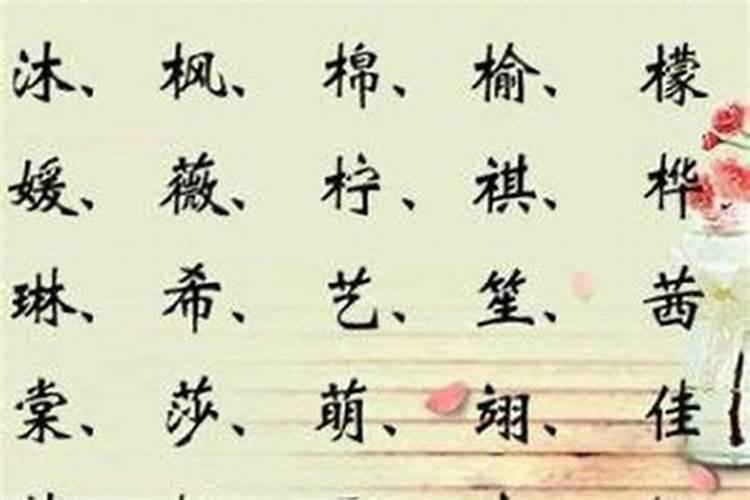 沐、枫、棉、榆、檬
媛、薇、柠、祺、桦
琳、希、艺、笙、茜
棠、莎、萌、翊、佳